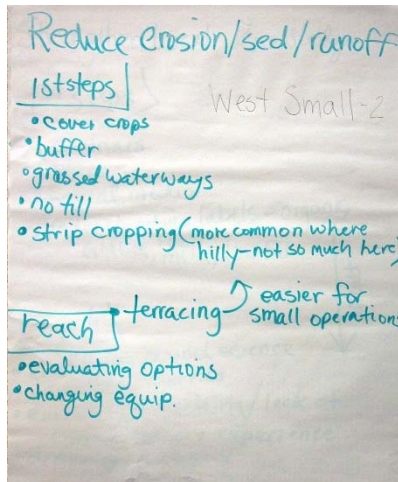 Reduce erosion/sed/runoff
1st steps
West Small-2
• cover crops
• buffer
• grassed waterways
• no till
• strip cropping (more common where
hilly-not so much here)
• terracing
easier for
small operations
reach
• evaluating options
• changing equip.